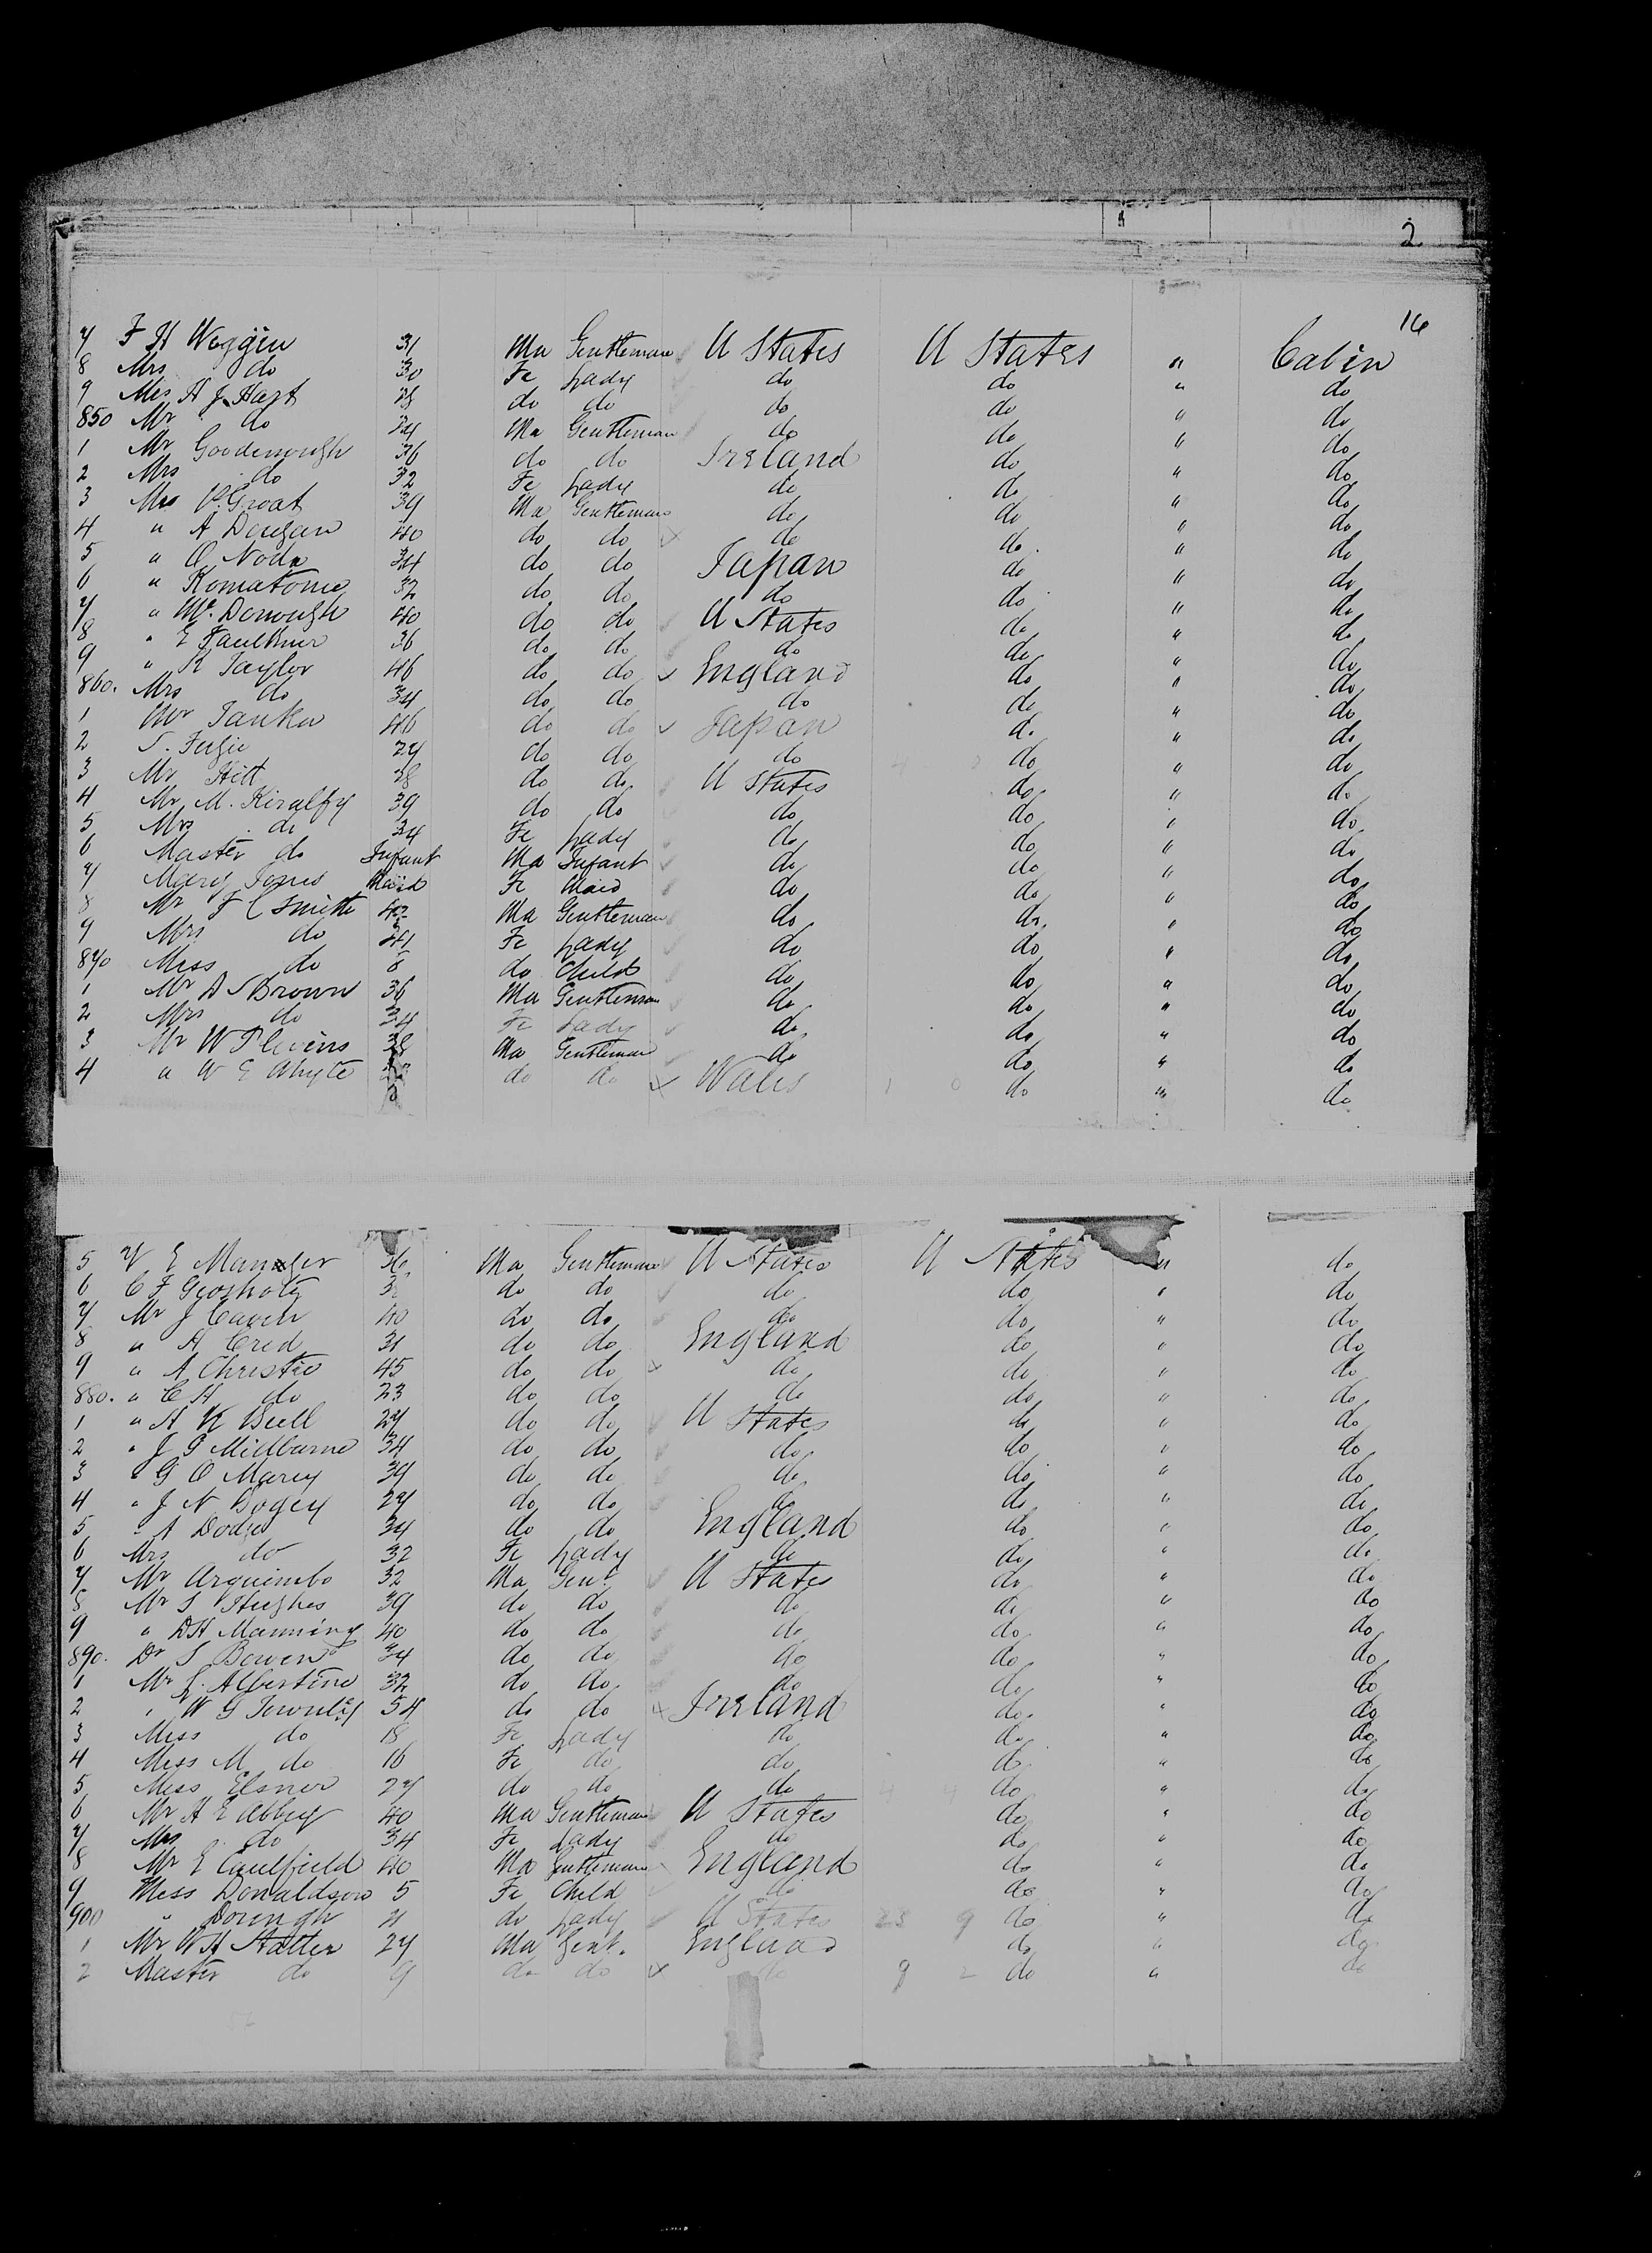 2
16
7 F H Wiggin 31 Ma Gentleman U States U States " Cabin
8 Mrs do 30 Fe Lady do do " do
9 Mrs H J Hart 28 do do do do " do
850 Mr do 24 Ma Gentleman do do " do
1 Mr Goodenough 36 do do Ireland do " do
2 Mrs do 32 Fe Lady do do " do
3 P. Groat 39 Ma Gentleman do do " do
4 " A Dougan 40 do do do do " do
5 " O Noda 34 do do Japan do " do
6 " Komatome 32 do do do do " do
7 " Mc Donough 40 do do U States do " do
8 " E Faulkner 36 do do do do " do
9 " R Taylor 46 do do England do " do
860. Mrs do 34 do do do do " do
1 Mr Tanka 46 do do Japan do " do
2 S. Fugie 27 do do do do " do
3 Mr Hitt 28 do do U States do " do
4 Mr M. Kiralfy 39 do do do do " do
5 Mrs do 34 Fe Lady do do " do
6 Master do Infant Ma Infant do do " do
7 Mary Jones Maid Fe Maid do do " do
8 Mr F C Smith 42 Ma Gentleman do do " do
9 Mrs do 41 Fe Lady do do " do
870 Miss do 6 do Child do do " do
1 Mr D S Brown 36 Ma Gentleman do do " do
2 Mrs do 34 Fe Lady do do " do
3 Mr W Plevins 38 Ma Gentleman do do " do
4 " W E Whyte do do Wales 1 0 do " do
5 E Manger 36 Ma Gentleman U States U States " do
6 C F Grosholz do do do do " do
7 Mr J Caven 40 do do do do " do
8 " A Cred 31 do do England do " do
9 " A Christie 45 do do do do " do
880. " C H do 23 do do do do " do
1 " A K Buell 27 do do U States do " do
2 " J G Millburne 34 do do do do " do
3 " G O Marcy 39 do do do do " do
4 " J N Bogey 27 do do do do " do
5 " A Dodge 34 do do England do " do
6 Mrs do 32 Fe Lady do do " do
7 Mr Arguimbo 32 Ma Gent. U States do " do
8 Mr S Hughes 39 do do do do " do
9 " D H Manning 40 do do do do " do
890. Dr S Bowen 34 do do do do " do
1 Mr L. Albertine 32 do do do do " do
2 " W G Townley 54 do do Ireland do " do
3 Miss do 18 Fe Lady do do " do
4 Miss M do 16 Fe do do do " do
5 Miss Elsner 27 do do do 4 4 do " do
6 Mr H E Abbey 40 Ma Gentleman U States do " do
7 Mrs do 34 Fe Lady do do " do
8 Mr E Caulfield 40 Ma Gentleman England do " do
9 Miss Donaldson 5 Fe Child do do " do
900 " Dorengh 21 do Lady U States 23 9 do " do
1 Mr W H Statter 27 Ma Gent. England do " do
2 Master do 9 do do do 9 2 do " do